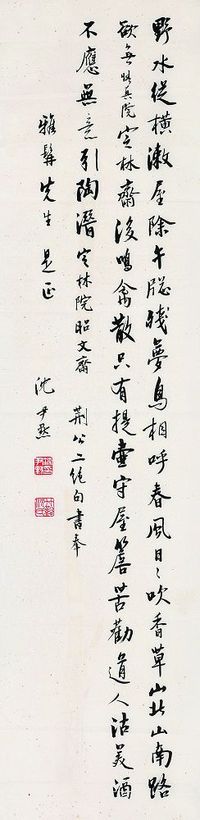 野水從橫漱屋除午牕殘夢鳥相呼春風日〻吹香草山北山南路
欲無悟真院定林齋後鳴禽散只有提壺守屋簷苦勸道人沽美酒
不應無意引陶潛定林院昭文齋 荆公二絕句書奉
雅 先生是正
沈尹默